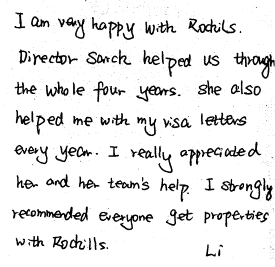 I am very happy with Rochils.
Director Sarah helped us through
the whole four years. she also
helped me with my visa letters
every year. I really appreciated
her and her team's help. I strongly
recommended everyone get properties
with Rochills.
Li